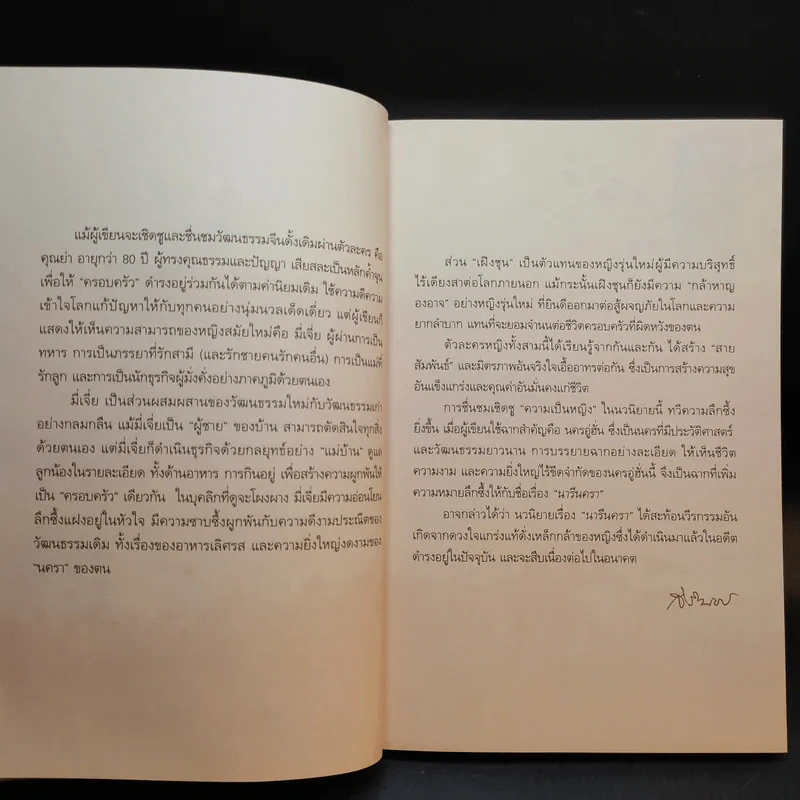 แม้ผู้เขียนจะเชิดชูและชื่นชมวัฒนธรรมจีนดั้งเดิมผ่านตัวละคร คือ
คุณย่า อายุกว่า 80 ปี ผู้ทรงคุณธรรมและปัญญา เสียสละเป็นหลักค้ำจุน
เพื่อให้ "ครอบครัว" ดำรงอยู่ร่วมกันได้ตามค่านิยมเดิม ใช้ความดีความ
เข้าใจโลกแก้ปัญหาให้กับทุกคนอย่างนุ่มนวลเด็ดเดี่ยว แต่ผู้เขียนก็
แสดงให้เห็นความสามารถของหญิงสมัยใหม่คือ มี่เจี่ย ผู้ผ่านการเป็น
ทหาร การเป็นภรรยาที่รักสามี (และรักชายคนรักคนอื่น) การเป็นแม่ที่
รักลูก และการเป็นนักธุรกิจผู้มั่งคั่งอย่างภาคภูมิด้วยตนเอง
มี่เจี่ย เป็นส่วนผสมผสานของวัฒนธรรมใหม่กับวัฒนธรรมเก่า
อย่างกลมกลืน แม้มี่เจี่ยเป็น "ผู้ชาย" ของบ้าน สามารถตัดสินใจทุกสิ่ง
ด้วยตนเอง แต่มี่เจี่ยก็ดำเนินธุรกิจด้วยกลยุทธ์อย่าง "แม่บ้าน" ดูแล
ลูกน้องในรายละเอียด ทั้งด้านอาหาร การกินอยู่ เพื่อสร้างความผูกพันให้
เป็น "ครอบครัว" เดียวกัน ในบุคลิกที่ดูจะโผงผาง มี่เจี่ยมีความอ่อนโยน
ลึกซึ้งแฝงอยู่ในหัวใจ มีความซาบซึ้งผูกพันกับความดีงามประณีตของ
วัฒนธรรมเดิม ทั้งเรื่องของอาหารเลิศรส และความยิ่งใหญ่งดงามของ
"นครา" ของตน
ส่วน "เฝิงชุน" เป็นตัวแทนของหญิงรุ่นใหม่ผู้มีความบริสุทธิ์
ไร้เดียงสาต่อโลกภายนอก แม้กระนั้นเฝิงชุนก็ยังมีความ "กล้าหาญ
องอาจ" อย่างหญิงรุ่นใหม่ ที่ยินดีออกมาต่อสู้ผจญภัยในโลกและความ
ยากลำบาก แทนที่จะยอมจำนนต่อชีวิตครอบครัวที่ผิดหวังของตน
ตัวละครหญิงทั้งสามนี้ได้เรียนรู้จากกันและกัน ได้สร้าง "สาย
สัมพันธ์" และมิตรภาพอันจริงใจเอื้ออาทรต่อกัน ซึ่งเป็นการสร้างความสุข
อันแข็งแกร่งและคุณค่าอันมั่นคงแก่ชีวิต
การชื่นชมเชิดชู "ความเป็นหญิง" ในนวนิยายนี้ ทวีความลึกซึ้ง
ยิ่งขึ้น เมื่อผู้เขียนใช้ฉากสำคัญคือ นครอู่ฮั่น ซึ่งเป็นนครที่มีประวัติศาสตร์
และวัฒนธรรมยาวนาน การบรรยายฉากอย่างละเอียด ให้เห็นชีวิต
ความงาม และความยิ่งใหญ่ไร้ขีดจำกัดของนครอู่ฮั่นนี้ จึงเป็นฉากที่เพิ่ม
ความหมายลึกซึ้งให้กับชื่อเรื่อง "นารีนครา"
อาจกล่าวได้ว่า นวนิยายเรื่อง "นารีนครา" ได้สะท้อนวีรกรรมอัน
เกิดจากดวงใจแกร่งแท้ดั่งเหล็กกล้าของหญิงซึ่งได้ดำเนินมาแล้วในอดีต
ดำรงอยู่ในปัจจุบัน และจะสืบเนื่องต่อไปในอนาคต